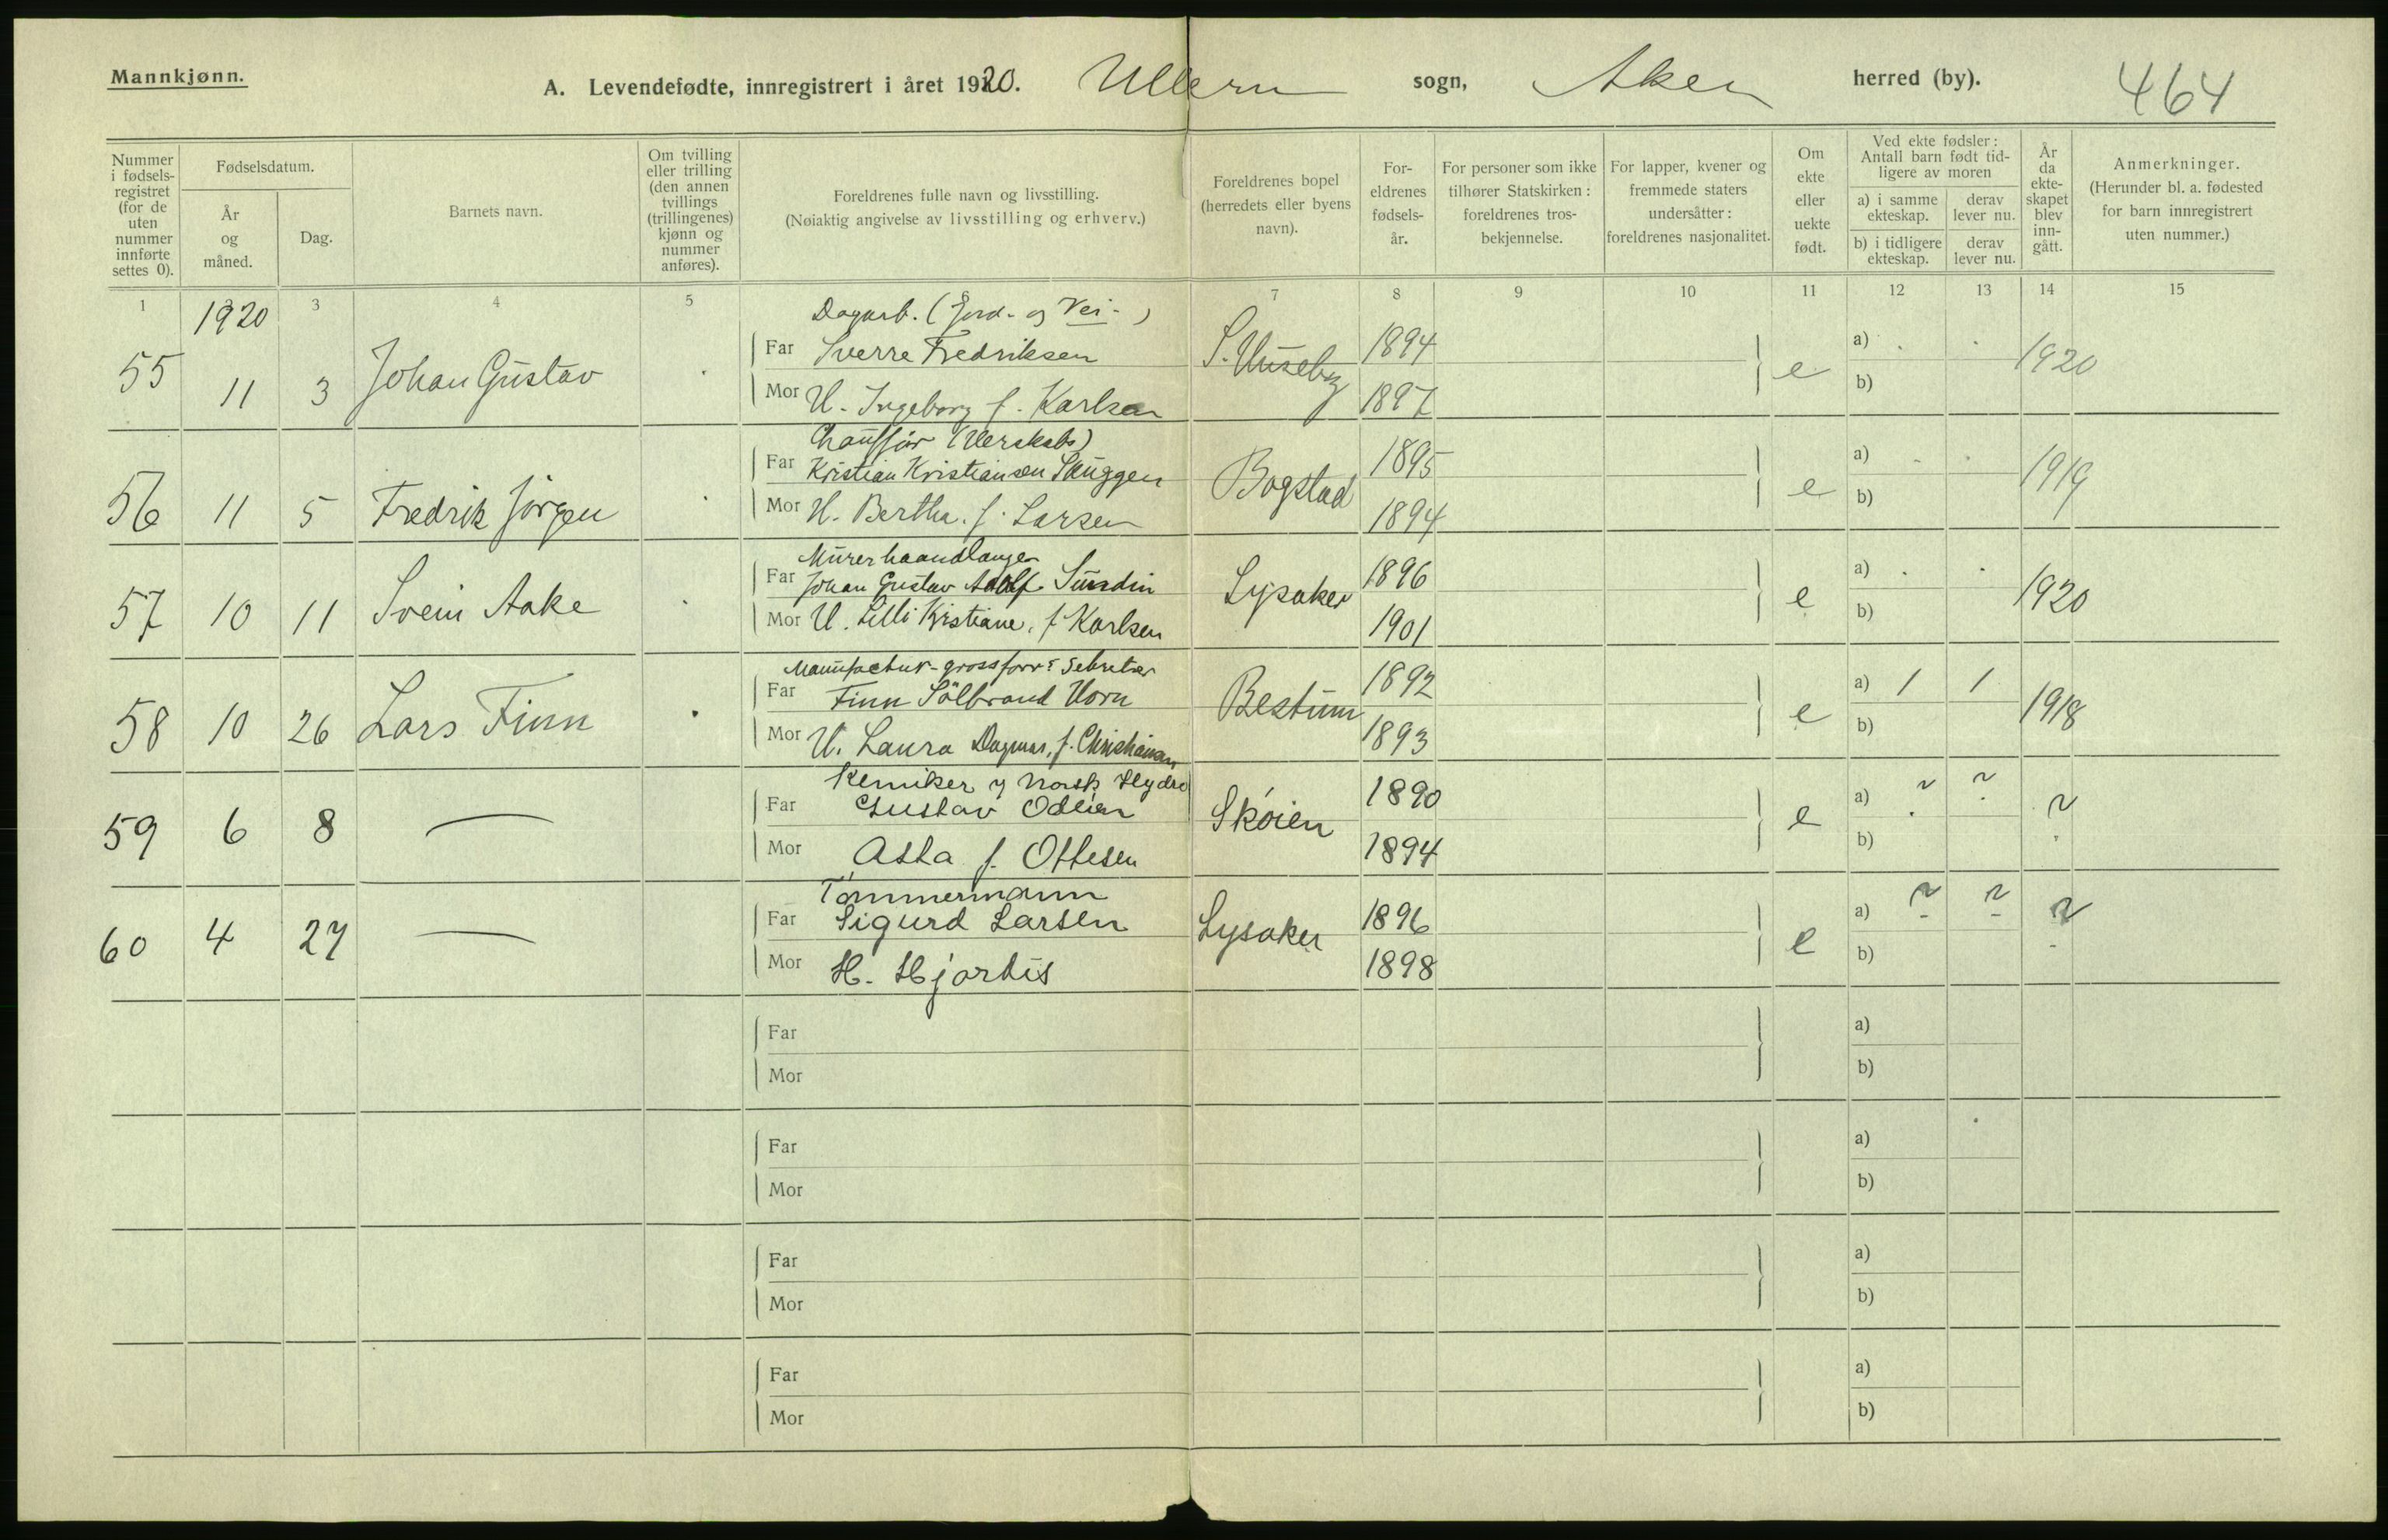 Mannkjønn.
A. Levendefødte, innregistrert i året 1920. Ullern sogn, Aker herred (by). 464
Nummer i fødsels-registret (for de uten nummer innførte settes 0).
Fødselsdatum.
År og måned.
Dag.
Barnets navn.
Om tvilling eller trilling (den annen tvillings (trillingenes) kjønn og nummer anføres).
Foreldrenes fulle navn og livsstilling.
(Nøiaktig angivelse av livsstilling og erhverv.)
Foreldrenes bopel (herredets eller byens navn).
For-eldrenes fødsels-år.
For personer som ikke tilhører Statskirken: foreldrenes tros-bekjennelse.
For lapper, kvener og fremmede staters undersåtter: foreldrenes nasjonalitet.
Om ekte eller uekte født.
Ved ekte fødsler: Antall barn født tid-ligere av moren
a) i samme ekteskap.
derav lever nu.
b) i tidligere ekteskap.
derav lever nu.
År da ekte-skapet blev inn-gått.
Anmerkninger.
(Herunder bl. a. fødested for barn innregistrert uten nummer.)
1 3 4 5 7 8 9 10 11 12 13 14 15
1920
Dagarb. (Jord- og Vei-)
55 11 3 Johan Gustav Far Sverre Fredriksen 1894 e a) 1920
Mor H. Ingeborg f. Karlsen 1897 b)
Chauffør
56 11 5 Fredrik Jörgen Far Kristian Kristiansen Bogstad 1895 e a) 1919
Mor H. Bertha f. Larsen 1894 b)
Murerhaandlanger
57 10 11 Svein Aake Far Johan Gustav Adolf Sundin Lysaker 1896 e a) 1920
Mor H. Lilli Kristiane, f. Karlsen 1901 b)
Manufactur-grossforr. Sekretær
58 10 26 Lars Finn Far Finn Sölbrand Horn Bestum 1892 e a) 1 1 1918
Mor H. Laura Dagmar, f. Christiansen 1893 b)
Kemiker v Norsk Hydro
59 6 8 — Far Gustav Odlien Sköien 1890 e a)
Mor Asta f. Ottesen 1894 b)
Tømmermann
60 4 27 — Far Sigurd Larsen Lysaker 1896 e a)
Mor H. Hjørdis 1898 b)
Far a)
Mor b)
Far a)
Mor b)
Far a)
Mor b)
Far a)
Mor b)